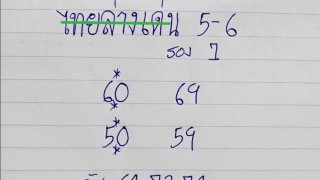 ไทยล่างเด่น 5-6
รอง 7
60 69
50 59